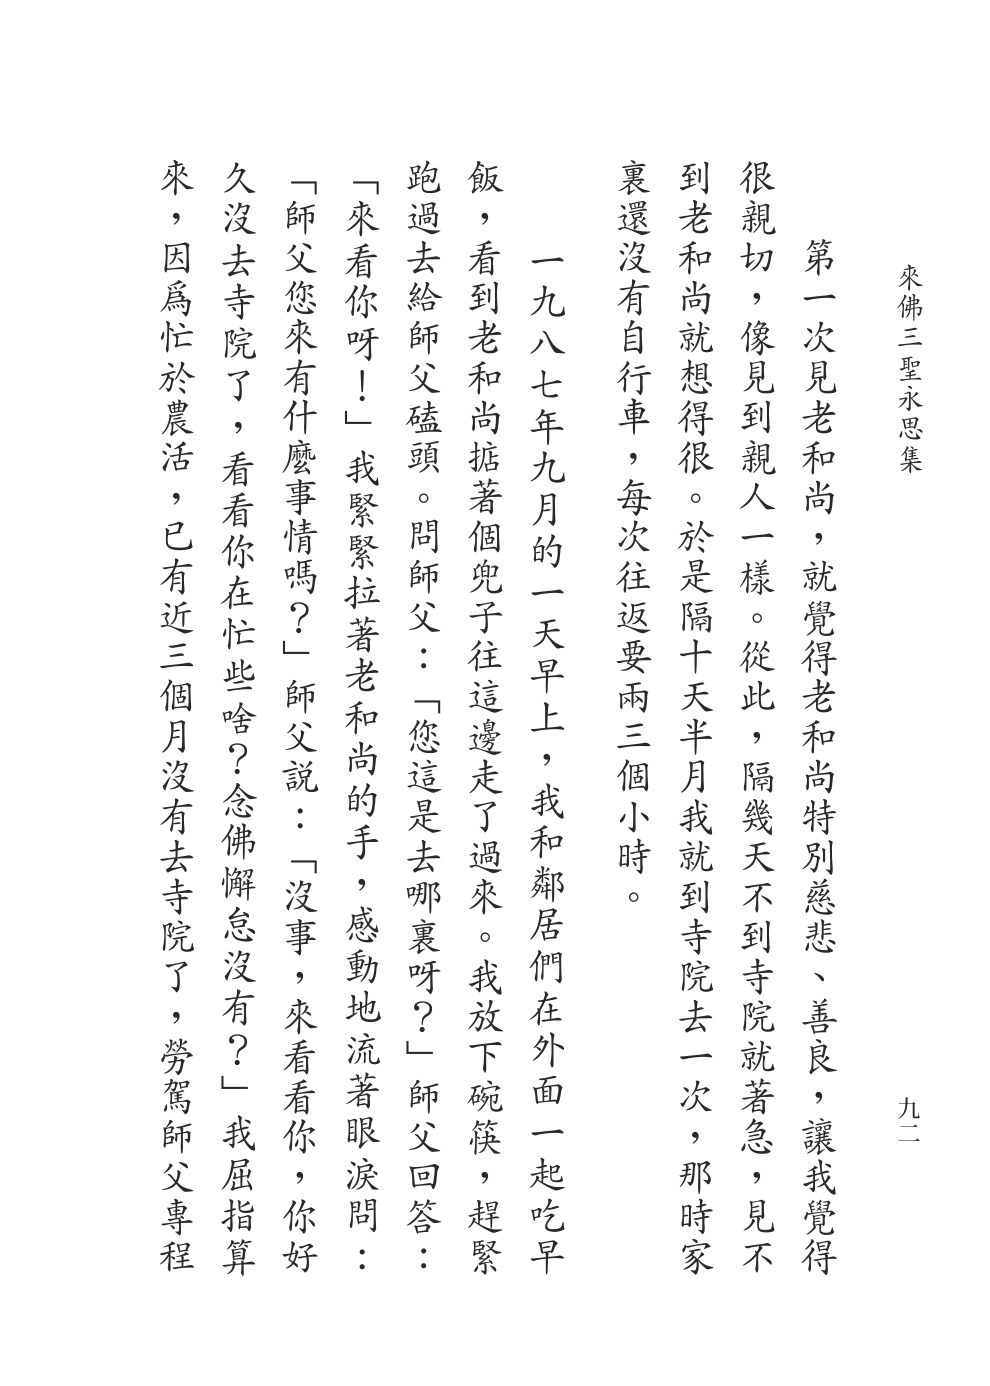 來佛三聖永思集
九二
第一次見老和尚，就覺得老和尚特別慈悲、善良，讓我覺得
很親切，像見到親人一樣。從此，隔幾天不到寺院就著急，見不
到老和尚就想得很。於是隔十天半月我就到寺院去一次，那時家
裏還沒有自行車，每次往返要兩三個小時。
一九八七年九月的一天早上，我和鄰居們在外面一起吃早
飯，看到老和尚掂著個兜子往這邊走了過來。我放下碗筷，趕緊
跑過去給師父磕頭。問師父：「您這是去哪裏呀？」師父回答：
「來看你呀！」我緊緊拉著老和尚的手，感動地流著眼淚問：
「師父您來有什麼事情嗎？」師父說：「沒事，來看看你，你好
久沒去寺院了，看看你在忙些啥？念佛懈怠沒有？」我屈指算
來，因爲忙於農活，已有近三個月沒有去寺院了，勞駕師父專程